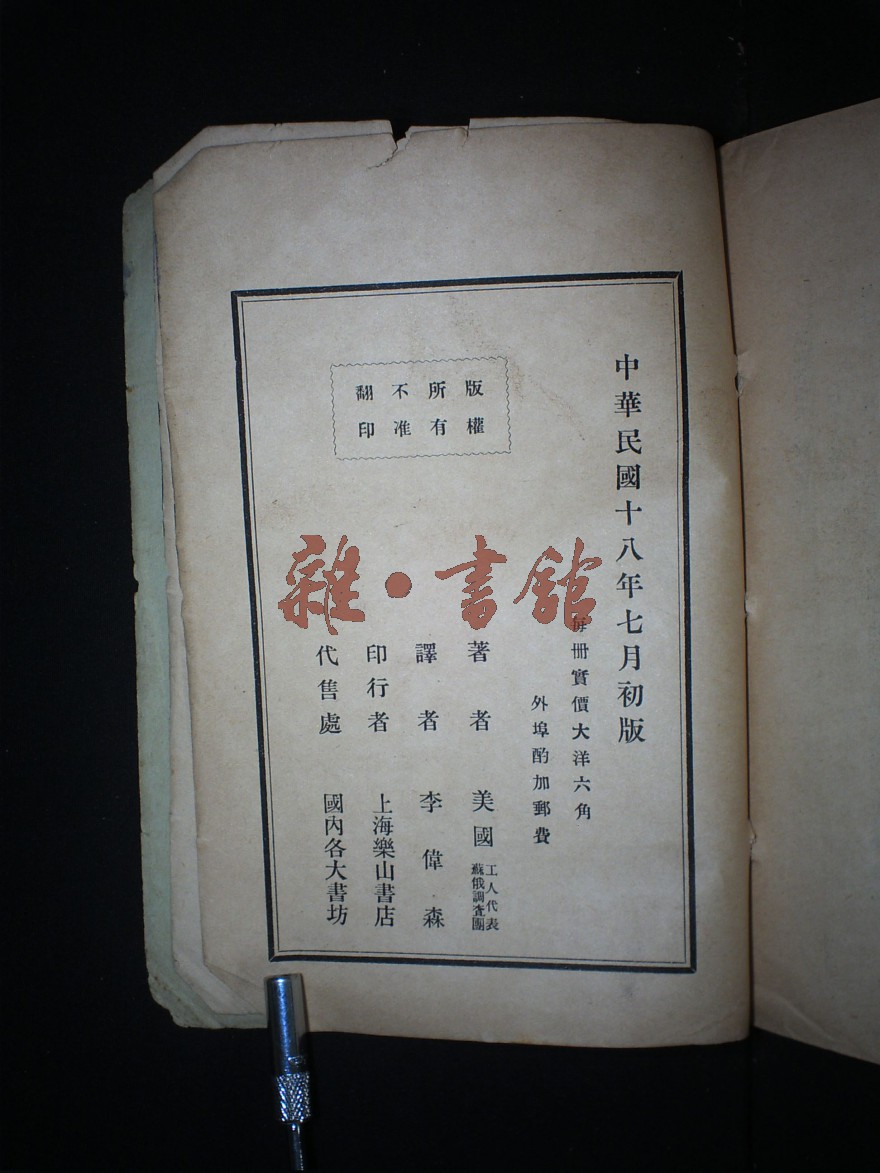 中華民國十八年七月初版
每冊實價大洋六角
外埠酌加郵費
著者 美國工人代表蘇俄調查團
譯者 李偉森
印行者 上海樂山書店
代售處 國內各大書坊
版權
所有
不准
翻印
雜·書館